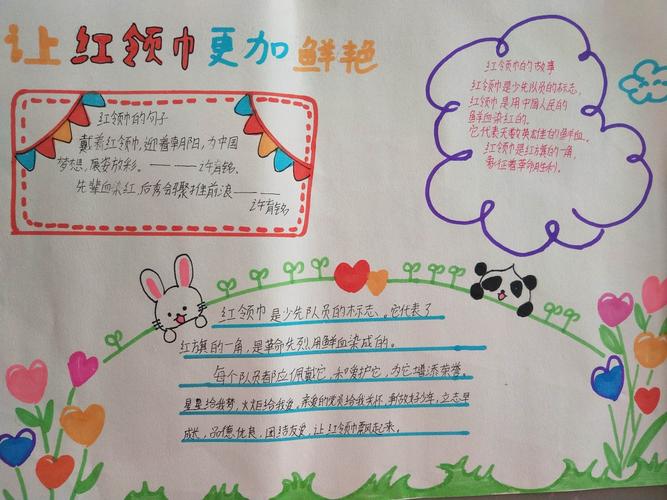 让红领巾更加鲜艳
红领巾的句子
戴着红领巾，迎着朝阳，为中国
梦想，展姿放彩。———许有铭
先辈血染红，后秀会驿推前浪——
许有铭
红领巾的故事
红领巾是少先队员的标志，
红领巾是用中国人民的
鲜血染红的。
它代表无数英雄的鲜血。
红领巾是红方旗的一角，
象征着革命胜利。
红领巾是少先队员的标志、它代表了
红方旗的一角，是革命先烈用鲜血染成的。
每个队员都应佩戴它，和爱护它，为它增添荣誉。
星星给我梦，火炬给我爱，亲爱的党员给我关怀，
好少年，立志早
成长，品德优良，团结友爱，让红领巾飘起来。